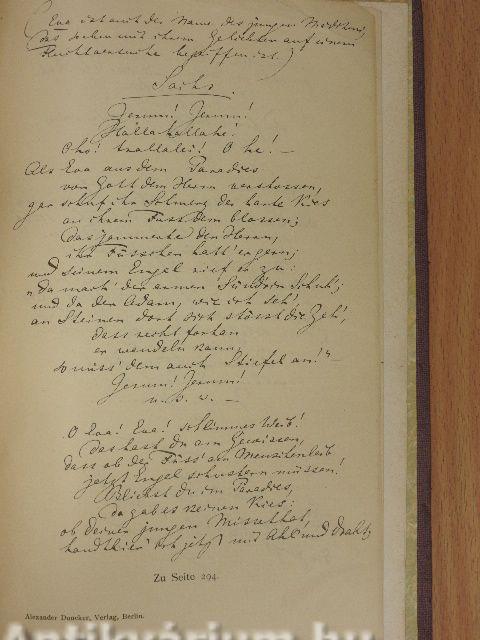 (Eva ist auch der Name des jungen Mädchens,
das soeben mit ihrem Geliebten auf einem
Fluchtversuche begriffen ist.)
Sachs
Jerum! Jerum!
Hallahallahe!
Oho! trallalei! O he! —
Als Eva aus dem Paradies
von Gott dem Herrn verstossen,
gar schuf ihr Schmerz der harte Kies
an ihrem Fuss dem blossen;
das jammerte den Herrn,
ihr Füsschen hatt' er gern;
und seinem Engel rief er zu:
"da mach' der armen Sünd'rin Schuh';
und da der Adam, wie ich seh',
an Steinen dort sich stösst die Zeh',
dass recht fortan
er wandeln kann,
so miss' dem auch Stiefel an!" —
Jerum! Jerum!
u. s. w. —
O Eva! Eva! schlimmes Weib!
das hast du am Gewissen,
dass ob der Füss' am Menschenleib
jetzt Engel schustern müssen!
Bliebst du im Paradies,
da gab es keinen Kies:
ob deiner jungen Missethat,
handthier' ich jetzt mit Ahl' und Draht,
Zu Seite 294.
Alexander Duncker, Verlag, Berlin.
Antikvárium.hu